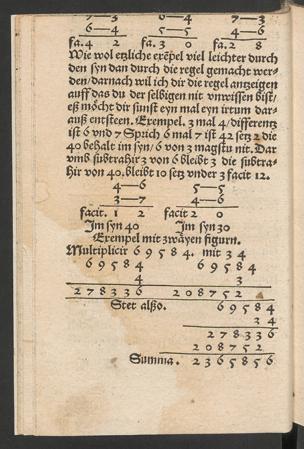 7—3 6—4 7—3
6—4 5—5 4—6
fa. 4 2 fa. 3 0 fa. 2 8
Wie wol etzliche exẽpel viel leichter durch
den syn dan durch die regel gemacht wer-
den/darnach wil ich dir die regel antzeigen
auff das du der selbigen nit vnwissen bist/
eß möcht dir sunst eyn mal eyn irtum dar-
auß entsteen. Exempel. 3 mal 4/differentz
ist 6 vnd 7 Sprich 6 mal 7 ist 42 setz 2 die
40 behalt im syn/6 von 3 magstu nit. Dar
vmb subtrahir 3 von 6 bleibt 3 die subtra-
hir von 40. bleibt 10 setz vnder 3 facit 12.
4—6 5—5
3—7 4—6
facit. 1 2 facit 2 0
Im syn 40 Im syn 30
Exempel mit zwayen figurn.
Multiplicir 6 9 5 8 4. mit 3 4
6 9 5 8 4 6 9 5 8 4
4 3
2 7 8 3 3 6 2 0 8 7 5 2
Stet alßo. 6 9 5 8 4
3 4
2 7 8 3 3 6
2 0 8 7 5 2
Summa. 2 3 6 5 8 5 6